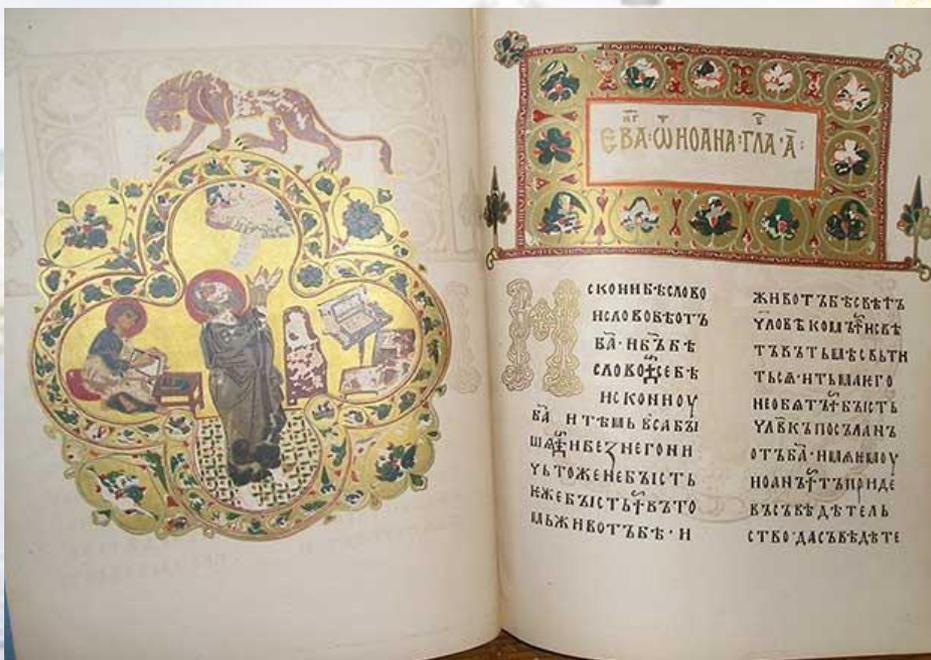 ЕВА·Ѿ ИОАНА·ГЛА·А҃:
ИСКОНИБѢСЛОВО
ИСЛОВОБѢОТЪ
БА҃·ИБ҃ЪБѢ
СЛОВОСЕБѢ
ИСКОНИОУ
БА҃ ИТѢМЬВСАБЫ
ШѦИБЕЗНЕГОНИ
ЧЬТОЖЕНЕБЫСТЬ
ѤЖЕБЫСТЬВЪТО
МЬЖИВОТЪБѢ·И
ЖИВОТЪБѢСВѢТЪ
ЧЛОВѢКОМЪИСВѢ
ТЪВЪТЬМѢСВЬТИ
ТЬСѦ·ИТЬМАѤГО
НЕОБѦТЪБЫСТЬ
ЧЛВКЪПОСЪЛАНЪ
ОТЪБА҃·ИМѦѤМОУ
ИОАНЪТЪПРИДЕ
ВЪСЪВѢДѢТЕЛЬ
СТВО·ДАСЪВѢДѢТЕ